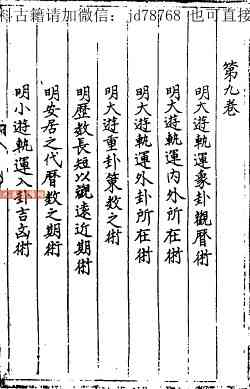 料古籍请加微信： jd78768 也可直接
第九卷
明大遊軌運象卦觀曆術
明大遊軌運內外所在術
明大遊軌運外卦所在術
明大遊重卦策數之術
明歷數長短以觀遠近期術
明安居之代曆數之期術
明小遊軌運入卦吉凶術